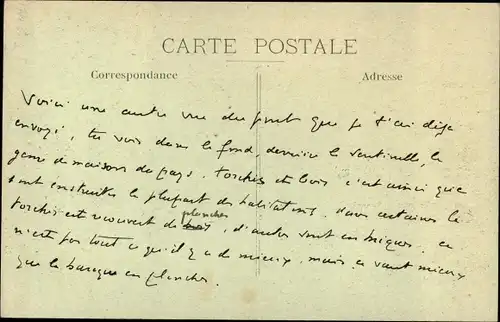 CARTE POSTALE
Correspondance
Adresse
Voici une autre vue du pont que je t'ai déjà
envoyé, tu vois dans le fond, derrière la sentinelle, le
genre de maisons du pays. torchis et bois c'est ainsi que
sont construites la plupart des habitations, dans certaines le
torchis est recouvert de planches, d'autres sont en briques, ce
n'est pas tout ce qu'il y a de mieux, mais ça vaut mieux
que la baraque en planches.